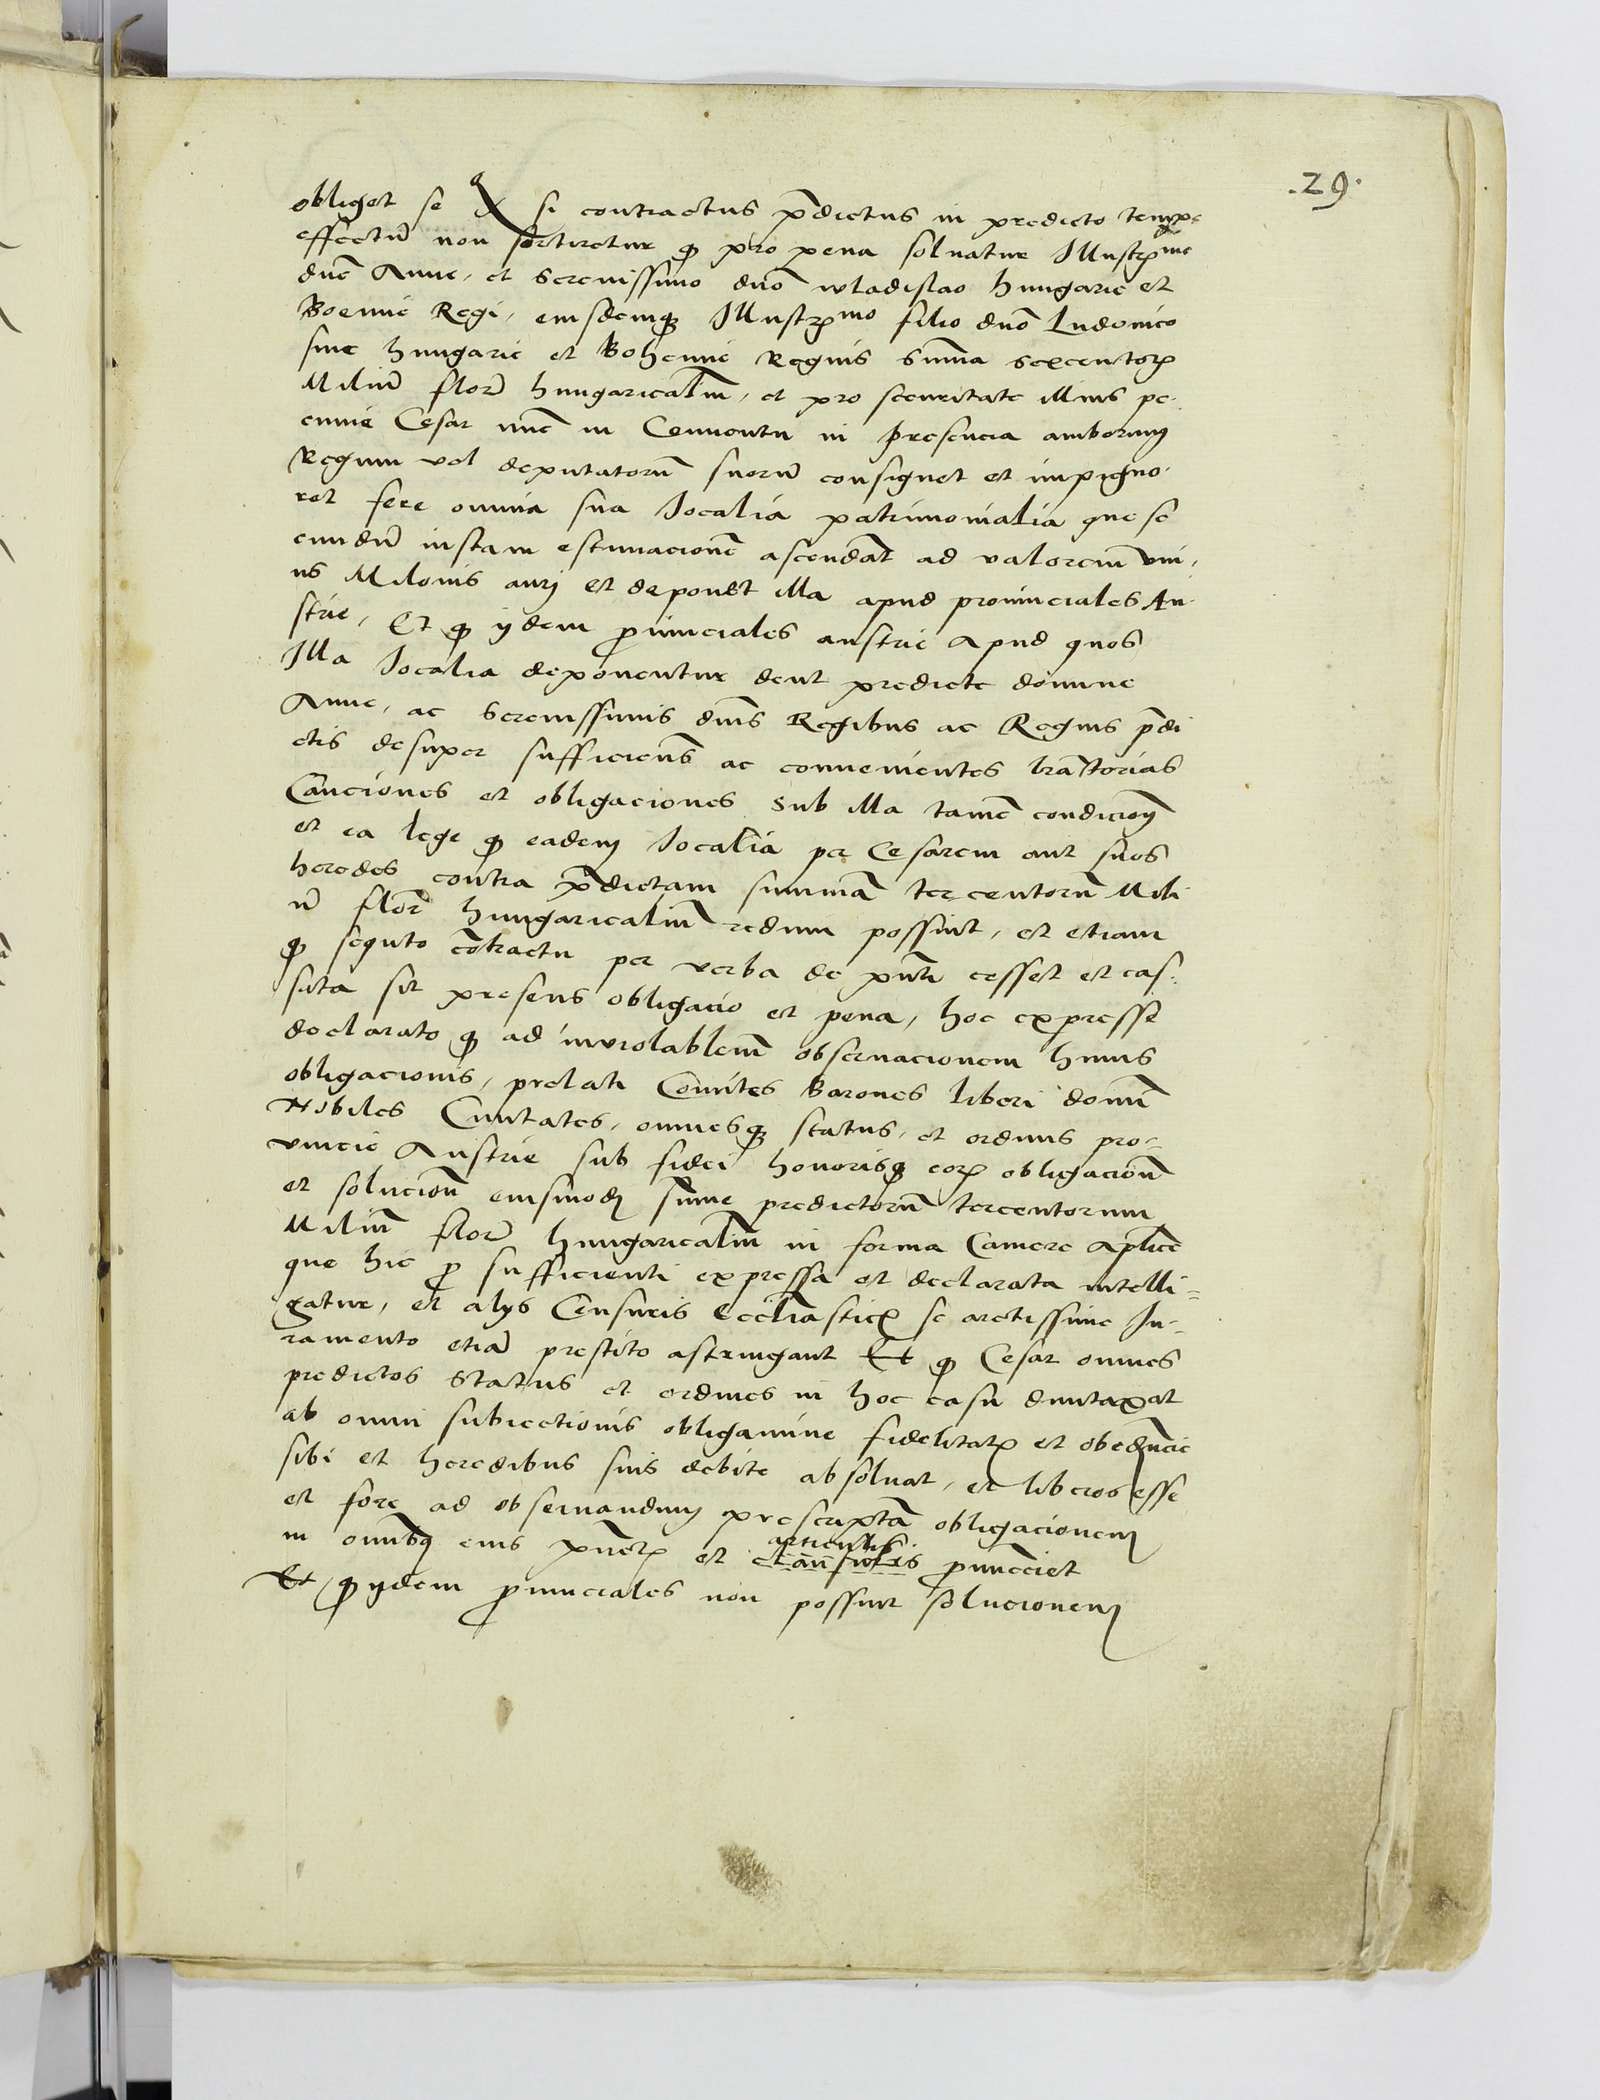 .29.
obliget se si contractus p̄dictus in predicto tempe
effectū non sortiretur ꝙ pro pena soluatur Illustrme
dne Anne, et Serenissimo dno wladislao hungarie et
Boemie Regi, eiusdemqꝫ Illustrmo filio dno Ludouico
siue hungarie et Bohemie Regnis summa
Miliū florꝫ hungaricaliū, et pro securitate illius pe-
cunie Cesar nunc in Conuentu in presencia amborum
Regum vel deputatorū suorū consignet et impigno-
ret fere omnia sua Jocalia patrimonialia que se
cundū iustam estimacionē ascendāt ad valorem vni-
us Milionis auri et deponet illa apud prouinciales Au-
strie, Et ꝙ ydem ꝓuinciales austrie Apud quos
Illa Jocalia deponentur dent predicte domine
Anne, ac Serenissimis dnis Regibus ac Regnis p̄di
ctis desuper sufficiens ac conuenientes lratorias
Cauciones et obligaciones sub illa tamē condicion
et ea lege ꝙ eadem Jocalia per Cesarem aut suos
heredes contra p̄dictam summam tercentorū Mili
ū florꝫ hungaricaliū redimi possint, et etiam
ꝙ sequto cōtractu per verba de pnti cesset et cas-
sata sit presens obligacio et pena, hoc expresse
declarato ꝙ ad inuiolablem obseruacionem huius
obligacionis, prelati Comites Barones liberi domī
Nobiles Ciuitates, omnesqꝫ status, et ordines pro-
uincie Austrie sub fidei honorisqꝫ eorꝫ obligacionū
et solucionū eiusmodi summe predictorū tercentorum
Miliū florꝫ hungaricaliū in forma Camere Aplice
que hic ꝓ sufficienti expressa et declarata intelli-
gatur, et alys Censuris Ecclīasticꝫ se arctissime Iu-
ramento etiā prestito astringant Et ꝙ Cesar omnes
predictos Status et ordines in hoc casu duntaxat
ab omni subiectionis obligamine fidelitatꝫ et obedncie
sibi et heredibus suis debite absoluat, et liberos esse
et fore ad obseruandum prescriptā obligacionem
articulis
in omnibꝫ eius pūctꝫ et clausulis pronūcciet
Et ꝙ ydem ꝓuinciales non possint solucionem